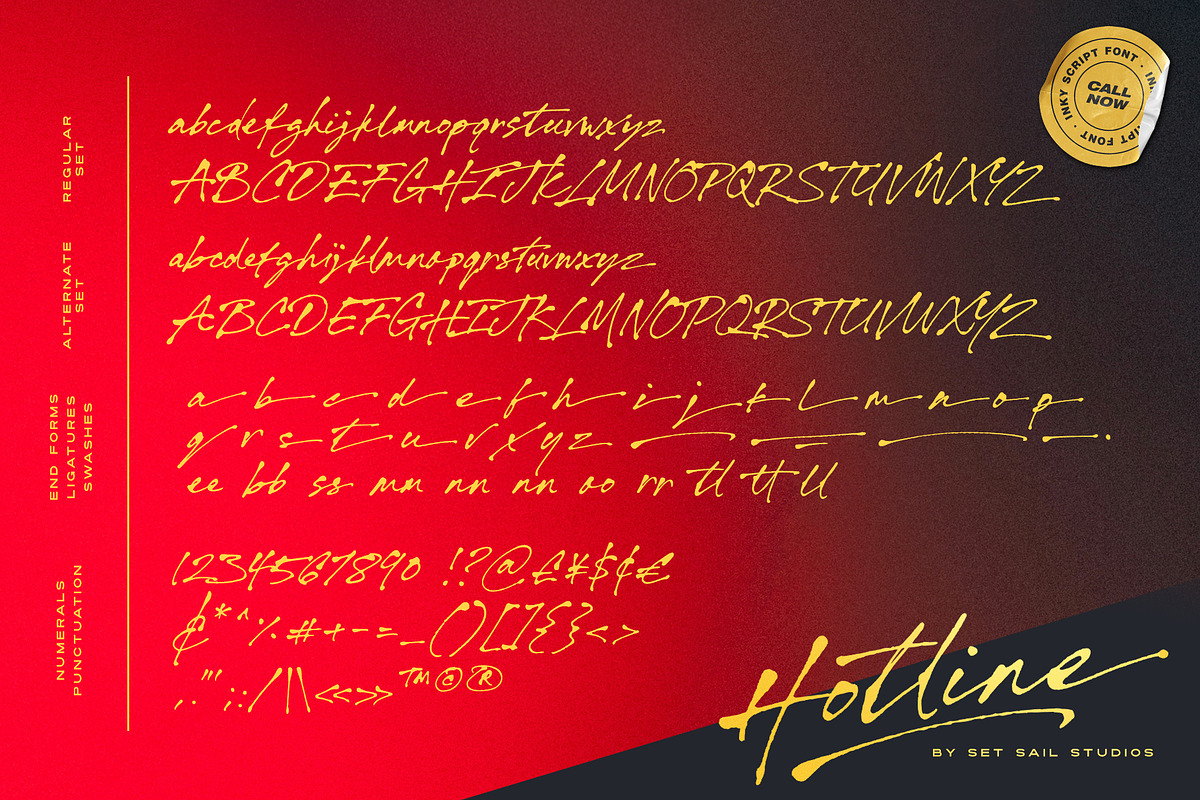 INKY SCRIPT FONT · IN
IPT FONT ·
CALL
NOW
REGULAR
SET
abcdefghijklmnopqrstuvwxyz
ABCDEFGHIJKLMNOPQRSTUVWXYZ
ALTERNATE
SET
abcdefghijklmnopqrstuvwxyz
ABCDEFGHIJKLMNOPQRSTUVWXYZ
END FORMS
LIGATURES
SWASHES
a b c d e f h i j k l m n o p
q r s t u v x y z
ee bb ss mm nn nn oo rr tl tt ll
NUMERALS
PUNCTUATION
1234567890 !?@£¥$¢€
₵*^%#+-=_()[]{}<>
,."' ;:/|\«<>»™©®
Hotline
BY SET SAIL STUDIOS